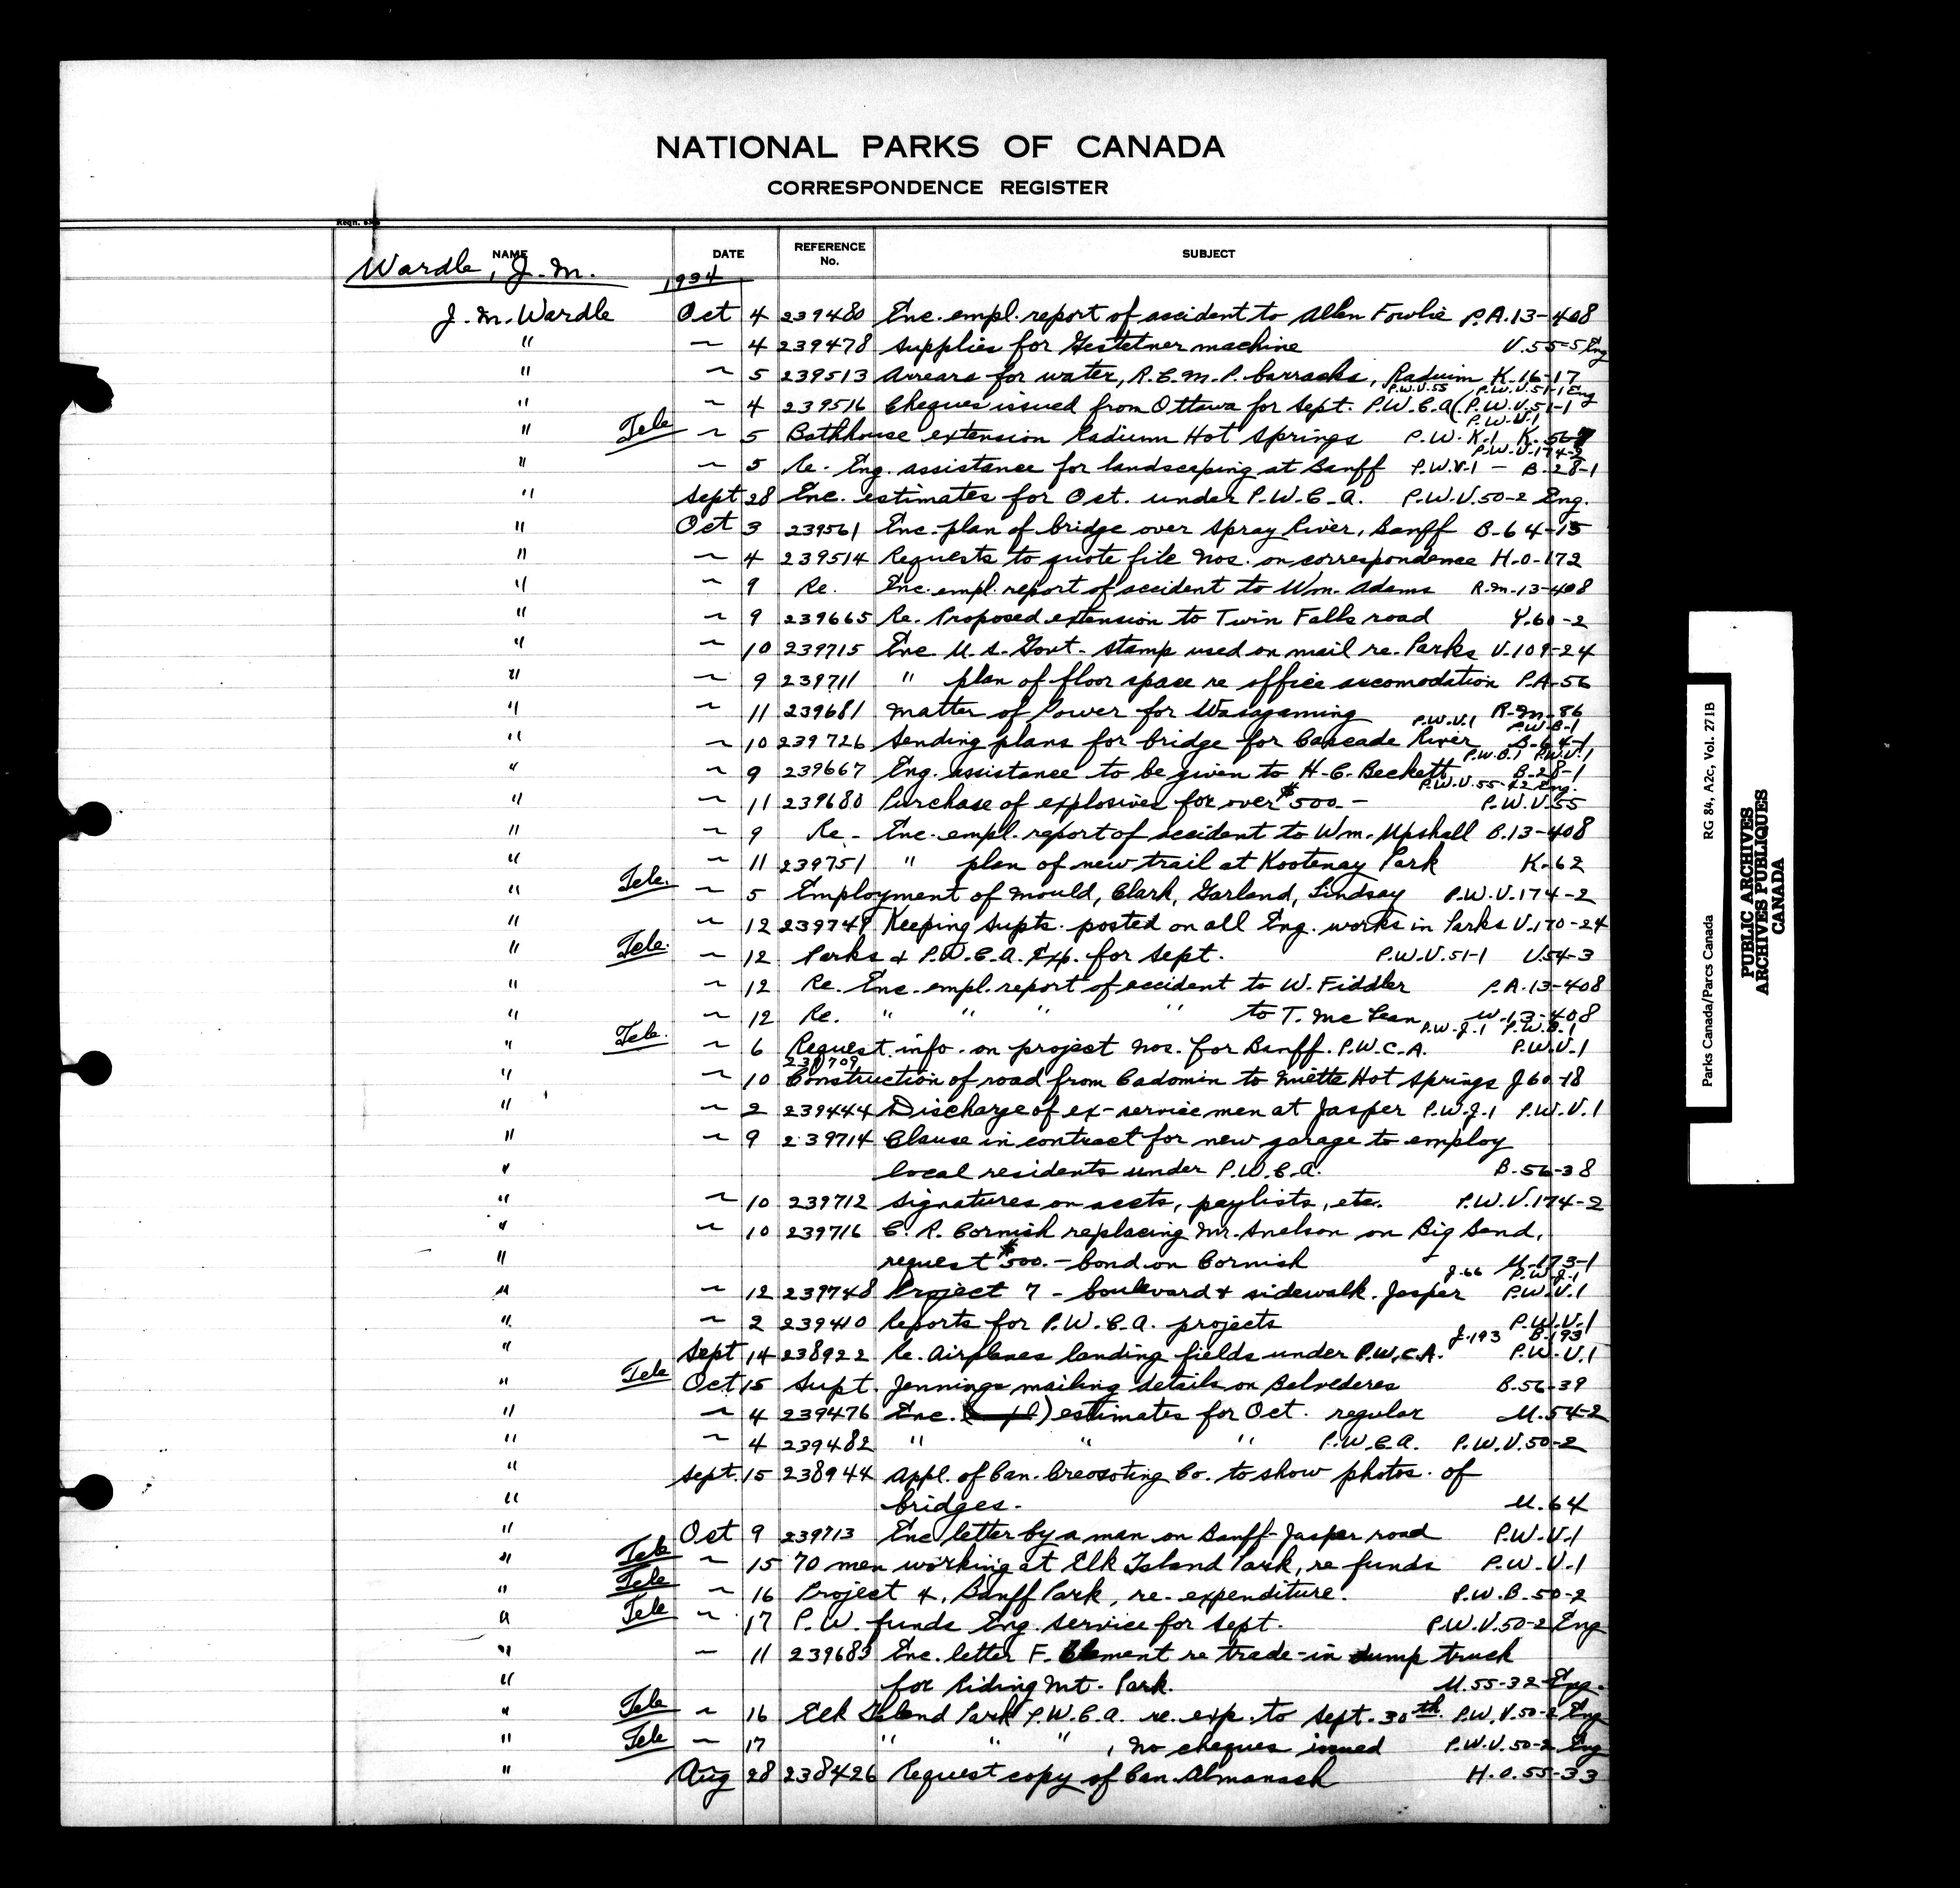 NATIONAL PARKS OF CANADA
CORRESPONDENCE REGISTER
NAME DATE REFERENCE No. SUBJECT
Wardle, J.M. 1934
J.M. Wardle Oct 4 239480 Enc. empl. report of accident to Allen Fowlie P.A.13-408
" ~ 4 239478 Supplies for Gestetner machine V.55-5 Eng
" ~ 5 239513 Arrears for water, R.C.M.P. barracks, Raduim K-16-17
P.W.V.55 P.W.V.51-1 Eng
" ~ 4 239516 Cheques issued from Ottawa for Sept. P.W.C.A (P.W.V.51-1
P.W.V.1
" Tele ~ 5 Bathhouse extension Radium Hot Springs P.W.K.1 K.56-7
P.W.V.174-2
" ~ 5 Re. Eng. assistance for landscaping at Banff P.W.V.1 - B.28-1
" Sept 28 Enc. estimates for Oct. under P.W.C.A. P.W.V.50-2 Eng.
" Oct 3 239561 Enc. plan of bridge over Spray River, Banff B-64-15
" ~ 4 239514 Requests to quote file Nos. on correspondence H.O-172
" ~ 9 Re. Enc. empl. report of accident to Wm. Adams R.M.13-408
" ~ 9 239665 Re. Proposed extension to Twin Falls road Y.60-2
" ~ 10 239715 Enc. U.S. Govt. stamp used on mail re. Parks V.109-24
" ~ 9 239711 " plan of floor space re office accomodation P.A-56
" ~ 11 239681 Matter of Power for Wasagaming R.M-86
P.W.V.1 P.W.B-1
" ~ 10 239726 Sending plans for bridge for Cascade River B-64-1
P.W.B.1 P.W.V.1
" ~ 9 239667 Eng. assistance to be given to H.C. Beckett B-28-1
P.W.V.55-12 Eng.
" ~ 11 239680 Purchase of explosives for over $500.- P.W.V.55
" ~ 9 Re - Enc. empl. report of accident to Wm. Upshall B.13-408
" ~ 11 239751 " plan of new trail at Kootenay Park K-62
" Tele. ~ 5 Employment of Mould, Clark, Garland, Lindsay P.W.V.174-2
" ~ 12 239749 Keeping Supts. posted on all Eng. works in Parks V.170-24
" Tele. ~ 12 Parks & P.W.C.A. Exp. for Sept. P.W.V.51-1 V.54-3
" ~ 12 Re. Enc. empl. report of accident to W. Fiddler P.A.13-408
" ~ 12 Re. " " " " to T. McLean W.13-408
P.W.J.1 P.W.B.1
" Tele. ~ 6 Request info. on project Nos. for Banff. P.W.C.A. P.W.V.1
239709
" ~ 10 Construction of road from Cadomin to Miette Hot Springs J60-18
" ~ 2 239444 Discharge of ex-service men at Jasper P.W.J.1 P.W.V.1
" ~ 9 239714 Clause in contract for new garage to employ
" local residents under P.W.C.A. B.56-38
" ~ 10 239712 Signatures on accts, paylists, etc. P.W.V.174-2
" ~ 10 239716 C.R. Cornish replacing Mr. Snelson on Big Bend,
" request $500.- bond on Cornish U-173-1
J.66 P.W.J.1
" ~ 12 239748 Project 7 - boulevard & sidewalk. Jasper P.W.V.1
" ~ 2 239410 Reports for P.W.C.A. projects P.W.V.1
J.193 B.193
" Sept 14 238922 Re. Airplanes landing fields under P.W.C.A. P.W.V.1
" Tele Oct 15 Supt. Jennings mailing details on Belvederes B.56-39
" ~ 4 239476 Enc. (empl) estimates for Oct. regular U.54-2
" ~ 4 239482 " " " P.W.C.A. P.W.V.50-2
" Sept. 15 238944 Appl. of Can. Creosoting Co. to show photos. of
" bridges. U.64
" Oct 9 239713 Enc letter by a man on Banff-Jasper road P.W.V.1
" Tele ~ 15 70 men working at Elk Island Park, re funds P.W.V.1
" Tele ~ 16 Project 4, Banff Park, re. expenditure. P.W.B.50-2
" Tele ~ 17 P.W. funds Eng. service for Sept. P.W.V.50-2 Eng
" ~ 11 239683 Enc. letter F. Clement re trade-in dump truck
" for Riding Mt. Park. U.55-32-Eng.
" Tele ~ 16 Elk Island Park P.W.C.A. re. exp. to Sept. 30th. P.W.V.50-2 Eng
" Tele ~ 17 " " " , no cheques issued P.W.V.50-2 Eng
" Aug 28 238426 Request copy of Can. Almanach H.O.55-33
Parks Canada/Parcs Canada RG 84, A2c, Vol. 271B
PUBLIC ARCHIVES
ARCHIVES PUBLIQUES
CANADA